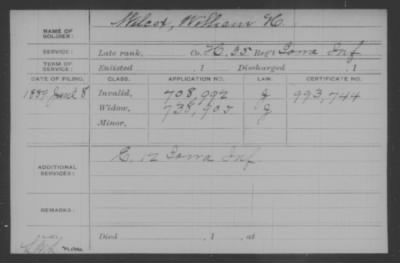 NAME OF SOLDIER: Wilcox, William H.
SERVICE: Late rank, Co. H, 35 Reg't Iowa Inf
TERM OF SERVICE: Enlisted , 1 Discharged , 1
DATE OF FILING. CLASS. APPLICATION NO. LAW. CERTIFICATE NO.
1889 June 8 Invalid, 708,992 G 993,744
Widow, 738,905 G
Minor,
ADDITIONAL SERVICES: C. 12 Iowa Inf.
REMARKS:
Died , 1 , at